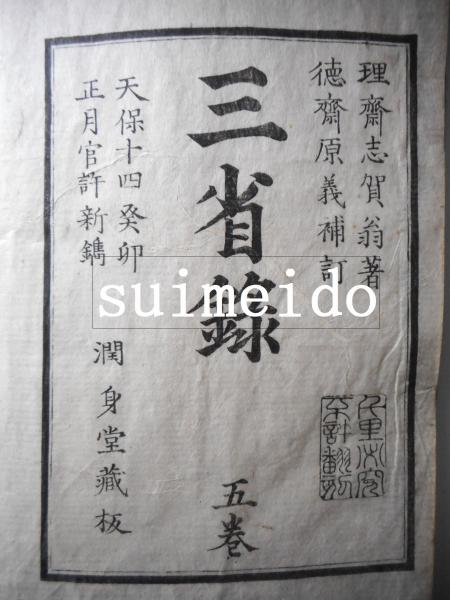 理齋志賀翁著
德齋原義補訂
三省錄
五卷
天保十四癸卯
正月官許新鐫
潤身堂藏板
suimeido